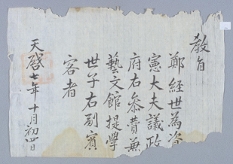 教旨
鄭經世為資
憲大夫議政
府右叅賛兼
藝文館提學
世子右副賓
客者
天啓七年十月初四日